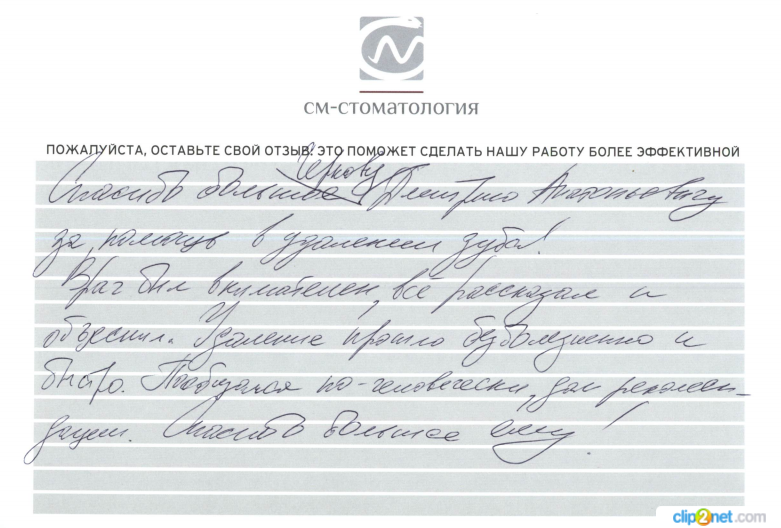 см-стоматология
ПОЖАЛУЙСТА, ОСТАВЬТЕ СВОЙ ОТЗЫВ. ЭТО ПОМОЖЕТ СДЕЛАТЬ НАШУ РАБОТУ БОЛЕЕ ЭФФЕКТИВНОЙ
Спасибо большое Дмитрию Анатольевичу
за помощь в удалении зуба!
Врач был внимателен, всё рассказал и
объяснил. Удаление прошло безболезненно и
быстро. Пообщался по-человечески, дал рекомен-
дации. Спасибо большое ему!
clip2net.com